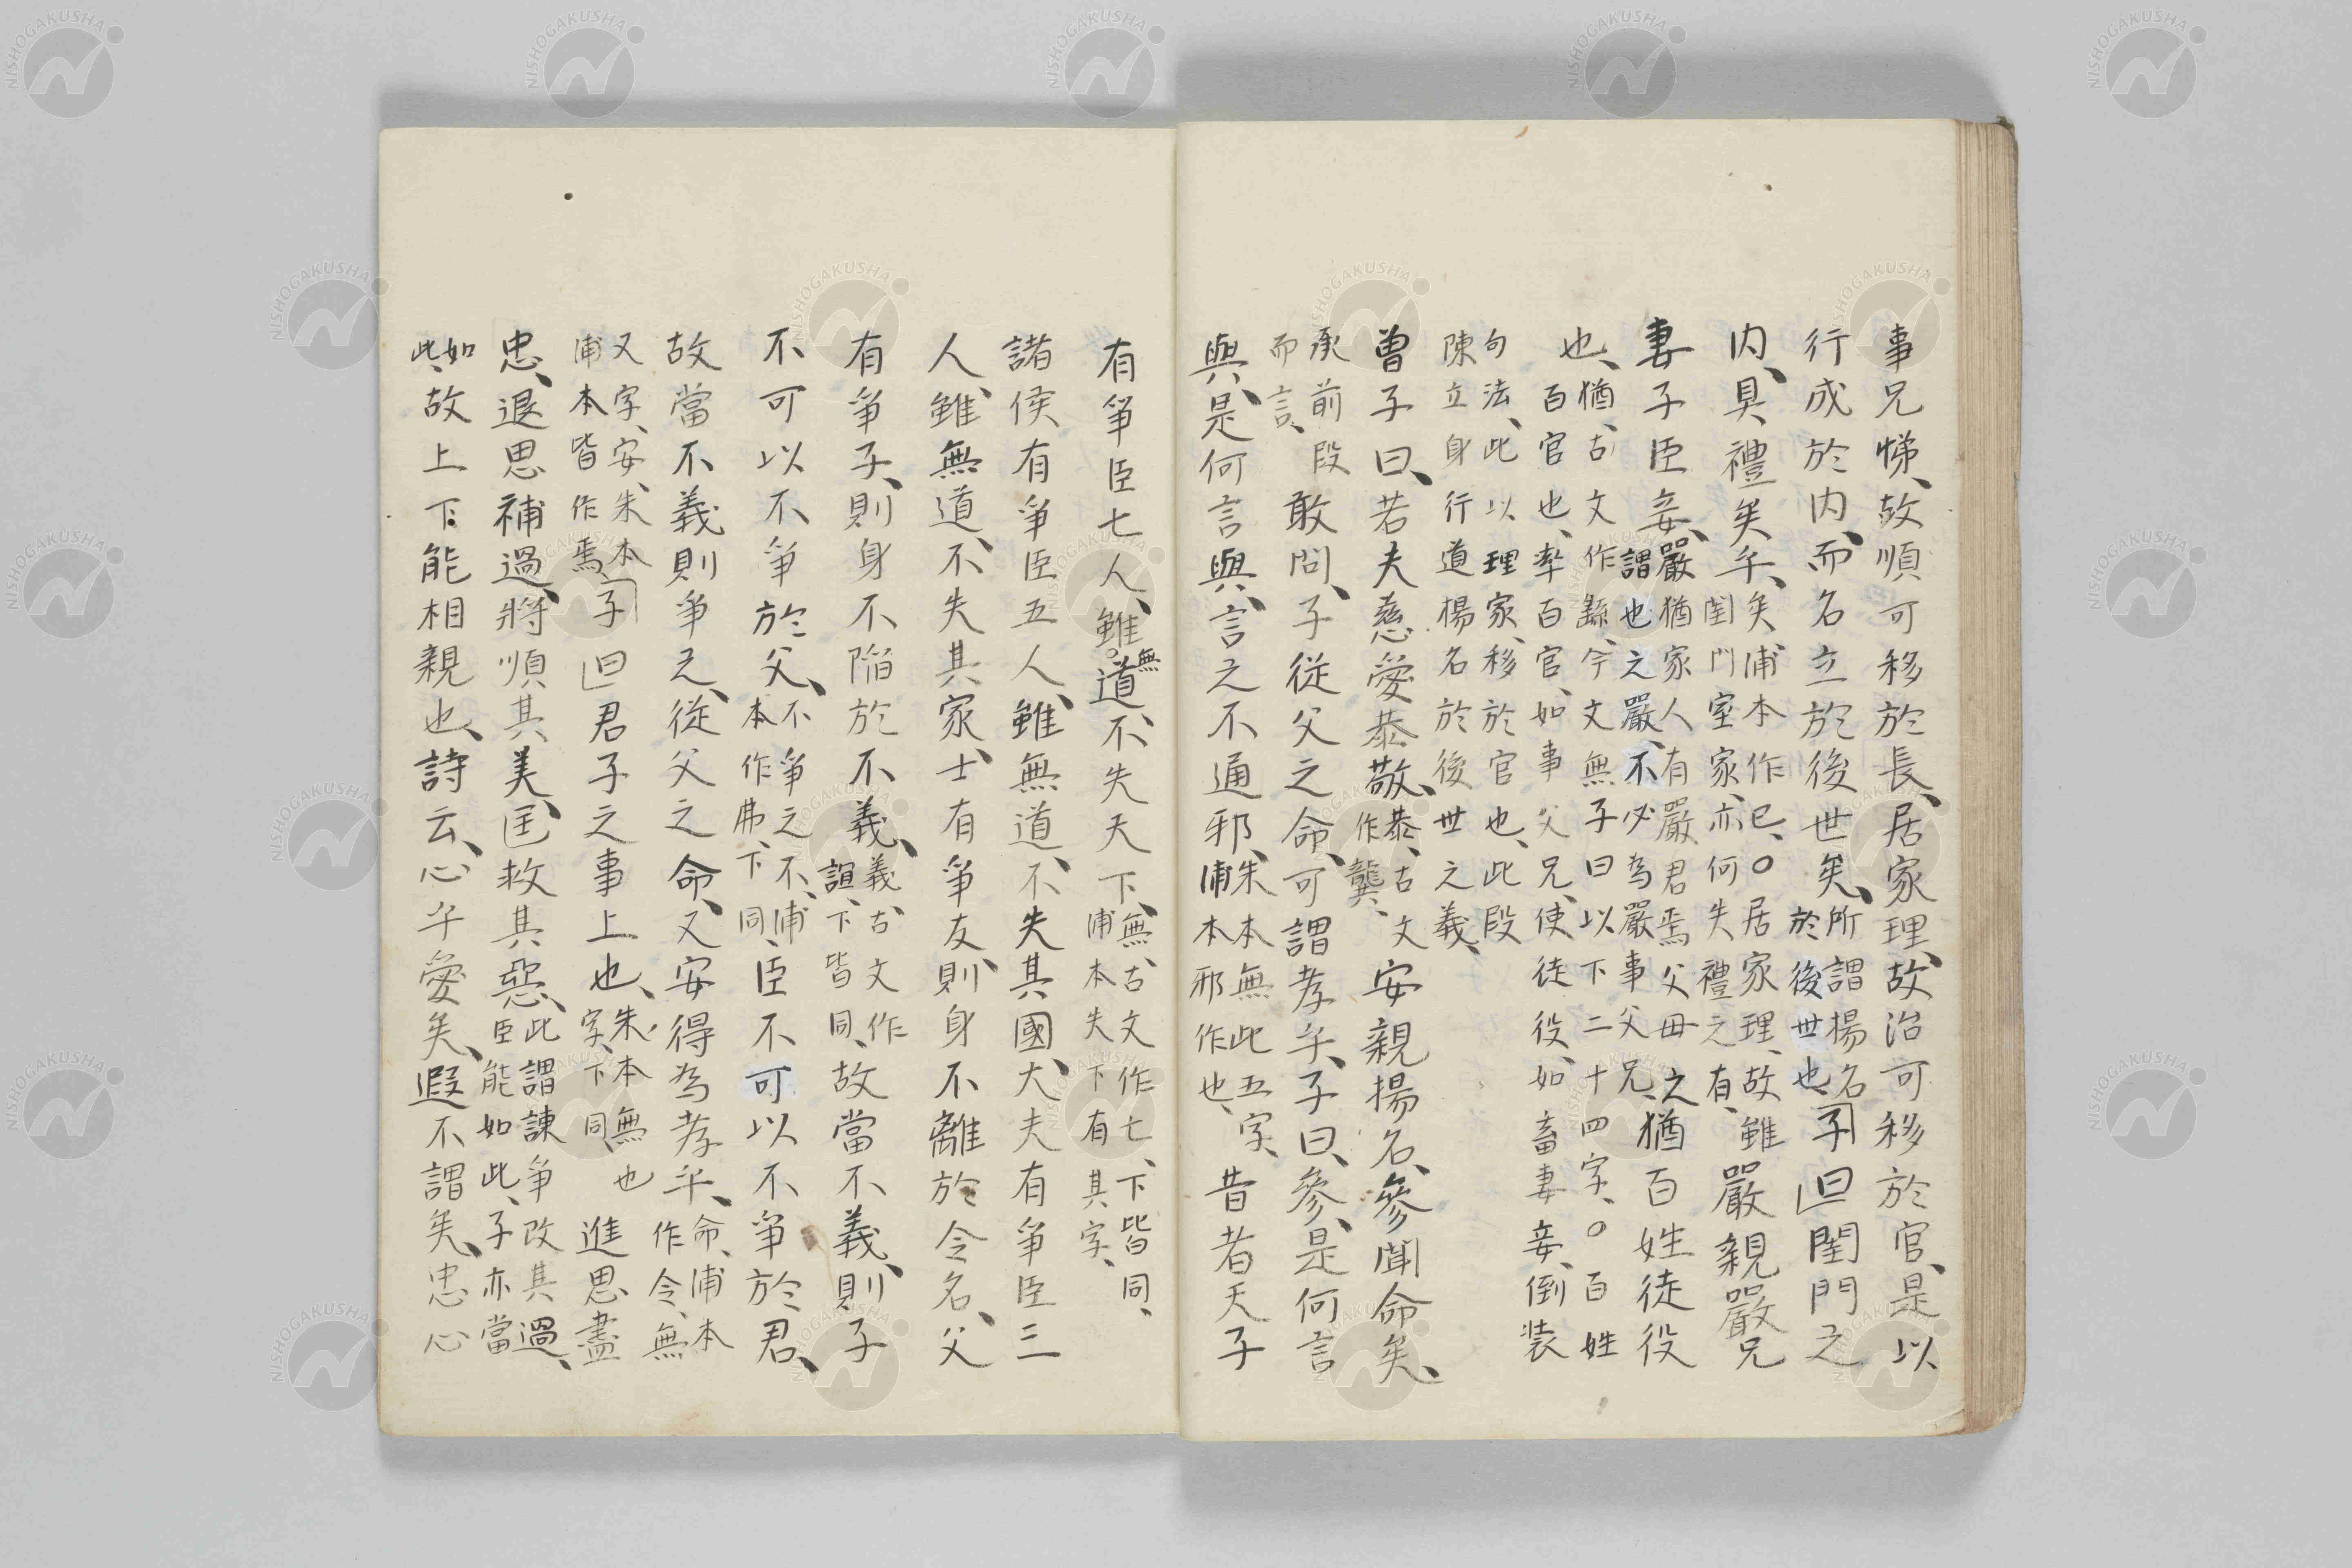 事兄悌、故順可移於長、居家理、故治可移於官、是以
行成於内、而名立於後世矣、所謂揚名
於後世也、子曰閨門之
内、具禮矣乎、矣、浦本作已、○居家理、故雖
閨門室家、亦何失禮之有、嚴親嚴兄
妻子臣妾、嚴猶家人有嚴君焉父母之
謂也之嚴、不必為嚴事父兄、猶百姓徒役
也、猶、古文作繇、今文無子曰以下二十四字、○百姓
百官也、率百官、如事父兄、使徒役、如畜妻妾、倒装
句法、此以理家、移於官也、此段
陳立身行道揚名於後世之義、
曽子曰、若夫慈愛恭敬、恭、古文
作龔、安親揚名、參聞命矣、
承前段
而言、敢問、子従父之命、可謂孝乎、子曰、參、是何言
與、是何言與、言之不通邪、朱本無此五字、
浦本邪作也、昔者天子
有爭臣七人、雖無道、不失天下、無、古文作亡、下皆同、
浦本失下有其字、
諸侯有爭臣五人、雖無道、不失其國、大夫有爭臣三
人、雖無道、不失其家、士有爭友、則身不離於令名、父
有爭子、則身不陥於不義、義、古文作
誼、下皆同、故當不義、則子
不可以不爭於父、不爭之不、浦
本作弗、下同、臣不可以不爭於君、
故當不義則爭之、従父之命、又安得為孝乎、命、浦本
作令、無
又字、安、朱本
浦本皆作焉、子曰君子之事上也、朱本無也
字、下同、進思盡
忠、退思補過、將順其美、匡救其惡、此謂諌爭改其過、
臣能如此、子亦當
如
此、故上下能相親也、詩云、心乎愛矣、遐不謂矣、忠心
NISHOGAKUSHA